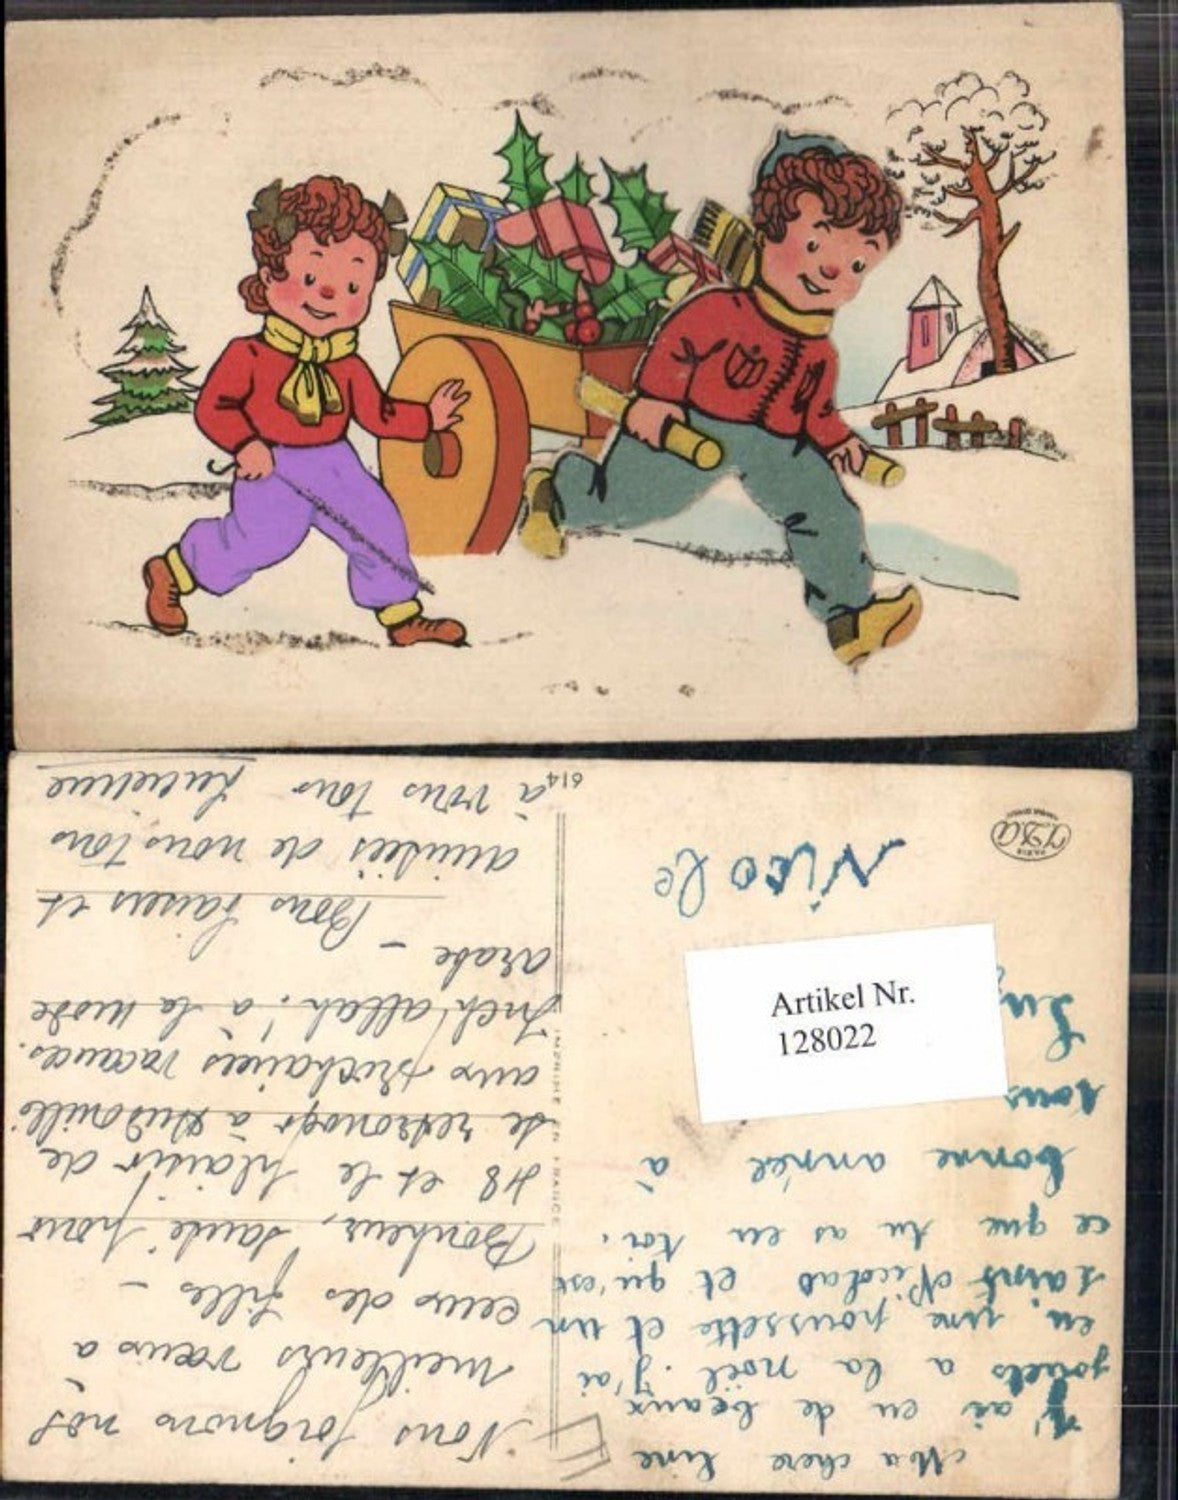 Ma chere Line
J'ai eu de beaux
jouets a la noël. j'ai
eu une poussette et un
saint Nicolas et qu'est
ce que tu as eu toi.
bonne année à
tous
Nicole
Artikel Nr.
128022
Nous joignons nos
meilleurs vœux à
ceux des filles -
Bonheur, santé pour
48 et le plaisir de
se
aux prochaines vacances.
Inch'allah! à la mode
arabe - Bons baisers et
amitiés de nous tous
à vous tous
614
IMPRIMÉ EN FRANCE
PARIS